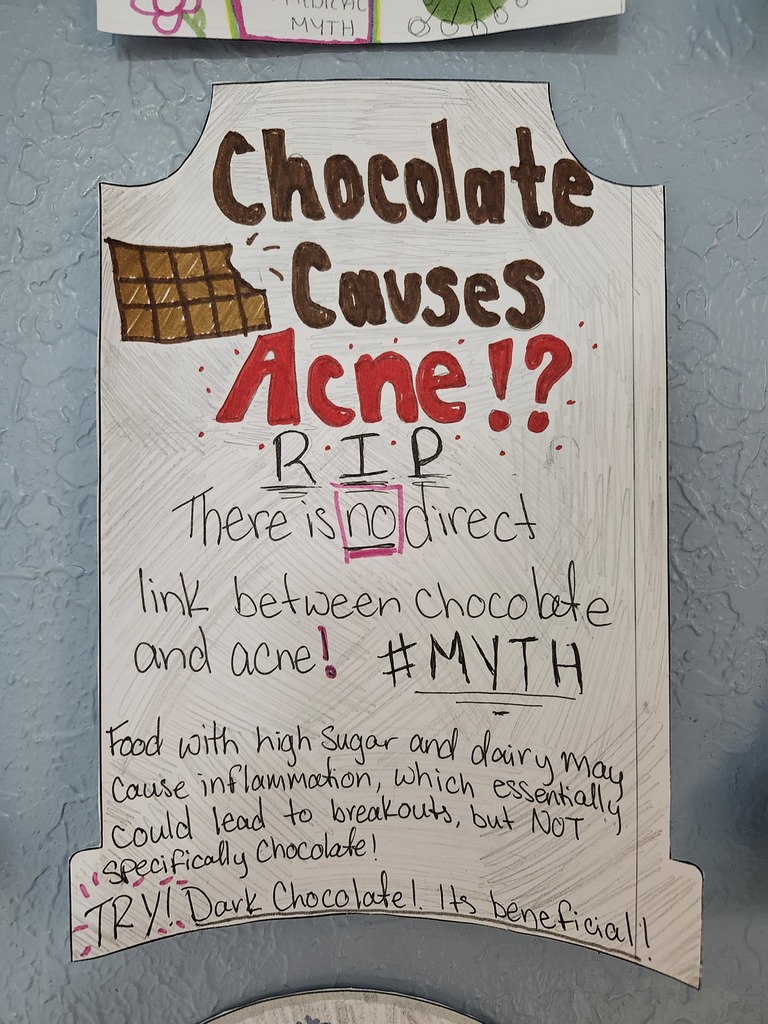 MEDICAL
MYTH
Chocolate
Causes
Acne!?
RIP
There is no direct
link between chocolate
and acne! #MYTH
Food with high sugar and dairy may
cause inflammation, which essentially
could lead to breakouts, but NOT
specifically chocolate!
TRY! Dark Chocolate! Its beneficial!